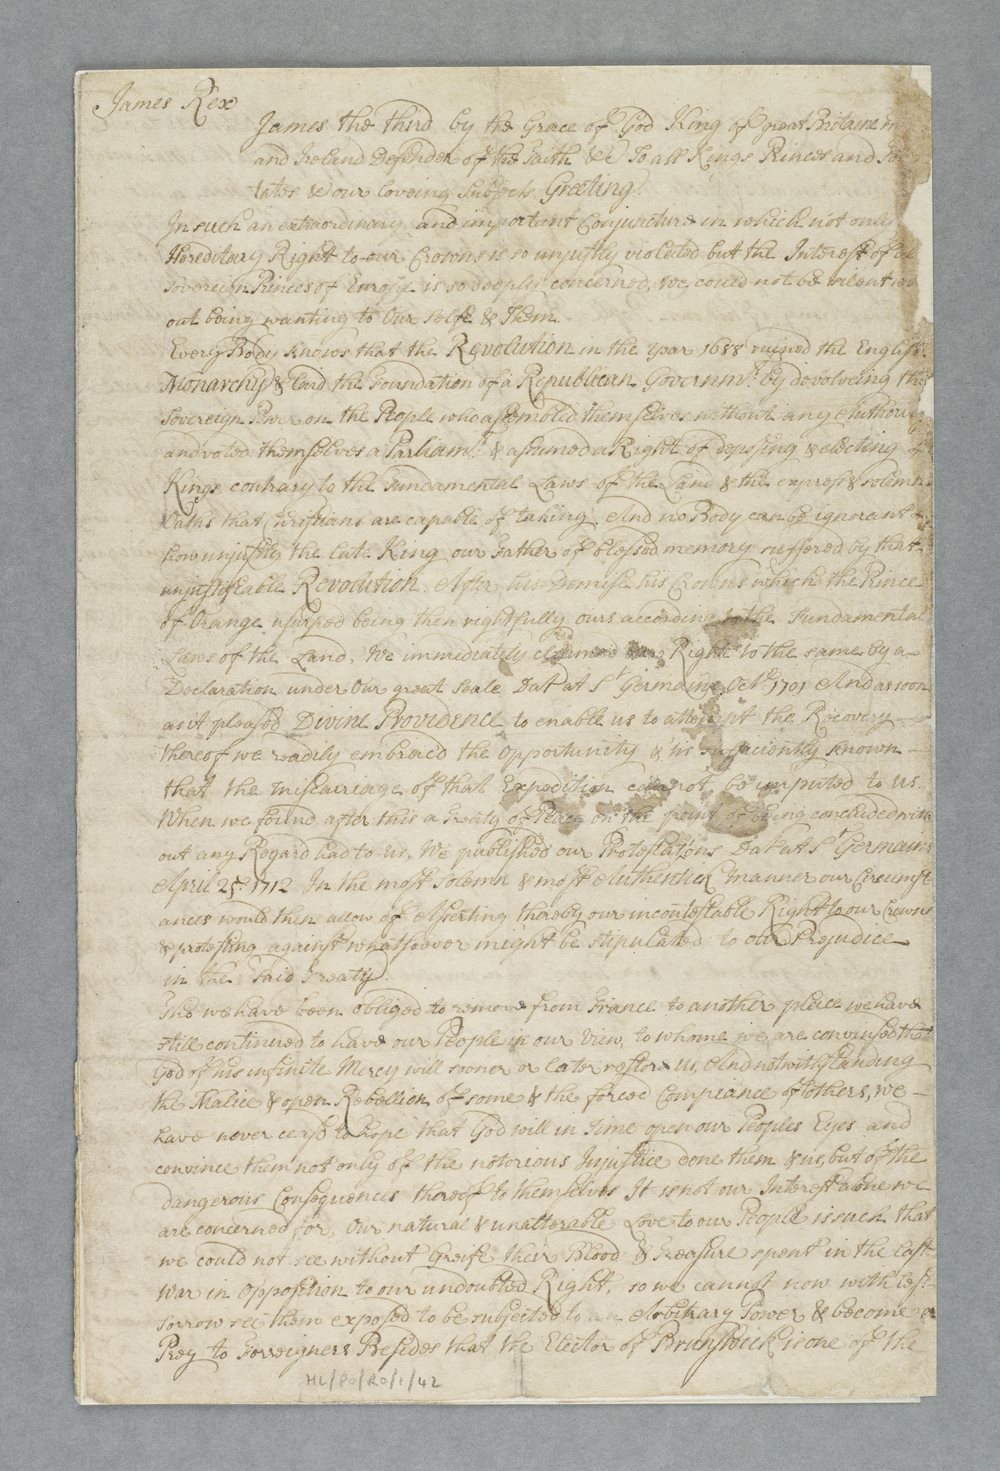 James Rex
James the third by the Grace of God King of great Britaine
and Ireland Defender of the Faith &c To all Kings Princes and
tates & our loveing Subjects Greeting.
In such an extraordinary and important Conjuncture in which not only
Hereditary Right to our Crowns is so unjustly violated but the Interest of
Sovereign Princes of Europe is so deeply concerned, we could not be silent
out being wanting to Our selfe & Them
Every Body knows that the Revolution in the year 1688 ruined the English
Monarchy & laid the Foundation of a Republican Governmt. by devolveing the
Sovereign Power on the People who assembled themselves without any Authority
and voted themselves a Parliamt. & assumed a Right of deposing & electing of
Kings contrary to the Fundamental Laws of the Land & the express & solemn
Oaths that Christians are capable of taking And no Body can be ignorant
how unjustly the late King our Father of blessed memory suffered by that
unjustifiable Revolution. After his Demise his Crowns which the Prince
of Orange usurped being then rightfully ours according to the Fundamental
Laws of the Land, We immediately claimed our Right to the same by a
Declaration under Our great Seale Dat at St Germains Octr. 1701 And as soon
as it pleased Divine Providence to enable us to attempt the Recovery
thereof we readily embraced the Opportunity & 'tis sufficiently known
that the miscarriage of that Expedition cannot be imputed to us.
When we found after this a Treaty of Peace on the point of being concluded with
out any Regard had to Us, We published our Protestations Dat at St Germains
April 25th 1712 In the most solemn & most Authentick manner our Circumst
ances would then allow of Asserting thereby our incontestable Right to our Crowns
& protesting against whatsoever might be stipulated to our Prejudice
in the said Treaty.
Tho we have been obliged to remove from France to another place we have
still continued to have our People in our View, to whome we are convinsed that
God of his infinite Mercy will sooner or later restore us, And notwithstanding
the Malice & open Rebellion of some & the forced Compiance of others, we
have never ceas'd to hope that God will in Time open our Peoples Eyes and
convince them not only of the notorious Injustice done them & us, but of the
dangerous Consequences thereof to themselves It is not our Interest alone we
are concerned for, Our natural & unalterable Love to our People is such that
we could not see without Greife their Blood & Treasure spent in the last
War in Opposition to our undoubted Right, so we cannot now with less
sorrow see them exposed to be subjected to an Arbitrary Power & become a
Prey to Forreigners Besides that the Elector of Brunswick is one of the
HL/PO/RO/1/42